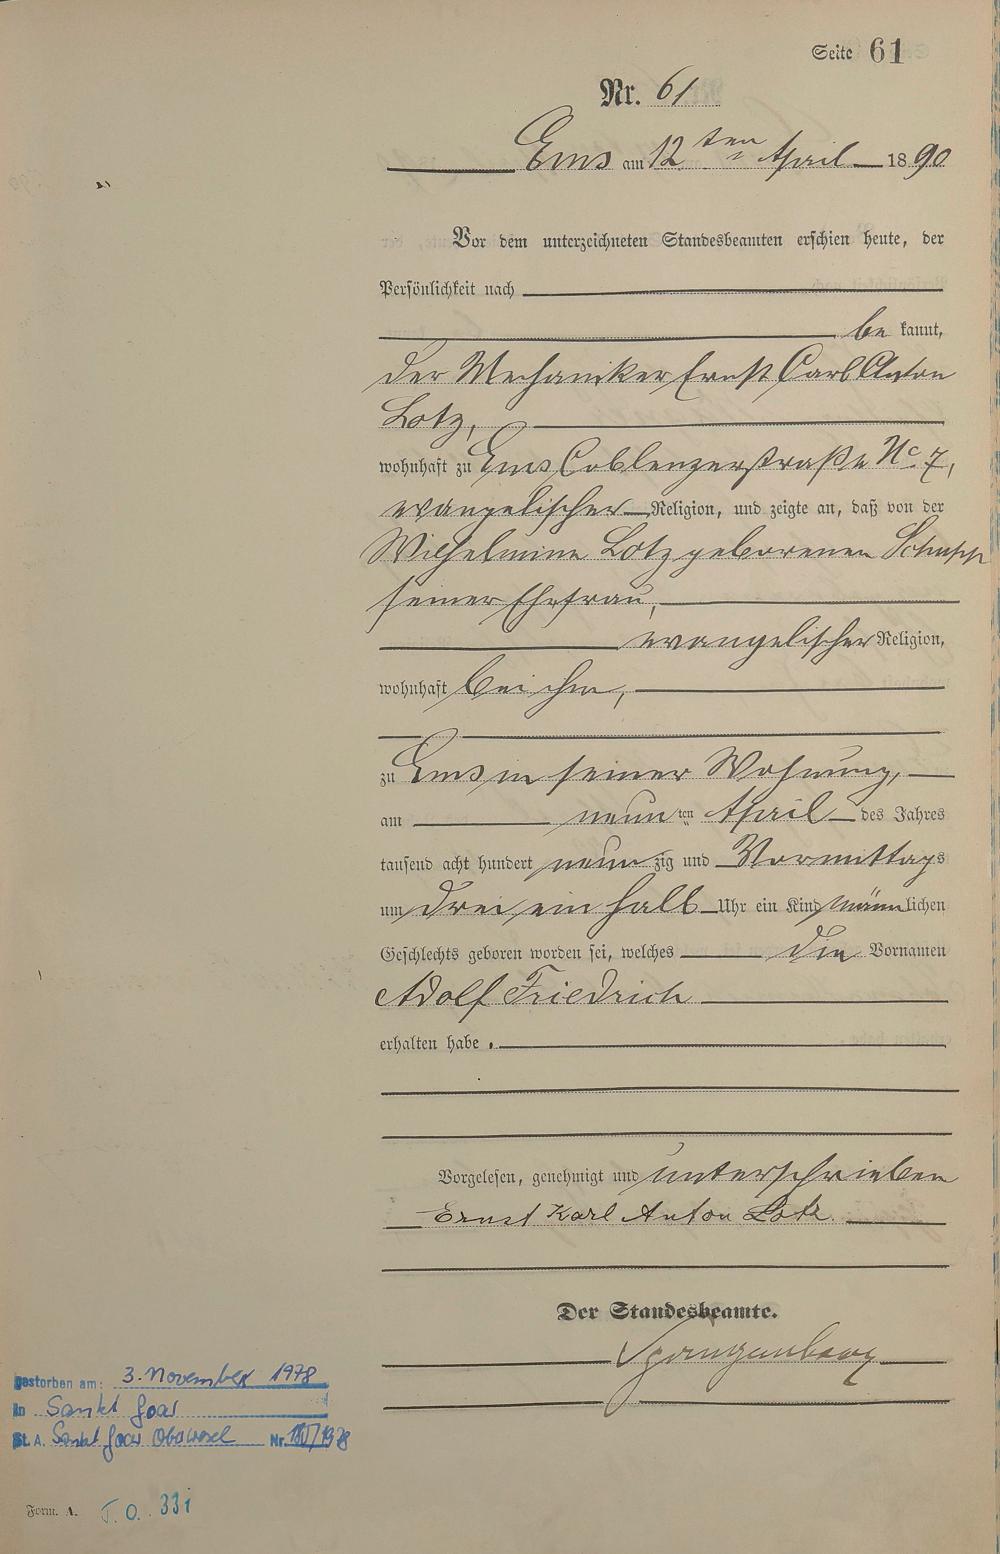 Seite 61
Nr. 61
Ems am 12ten April 1890
Vor dem unterzeichneten Standesbeamten erschien heute, der
Persönlichkeit nach
be kannt,
der Mechaniker Ernst Carl Anton
Lotz,
wohnhaft zu Ems Coblenzerstraße No 7,
evangelischer Religion, und zeigte an, daß von der
Wilhelmine Lotz geborenen Schupp
seiner Ehefrau,
evangelischer Religion,
wohnhaft bei ihm,
zu Ems in seiner Wohnung,
am neun ten April des Jahres
tausend acht hundert neun zig und Vormittags
um drei ein halb Uhr ein Kind männ lichen
Geschlechts geboren worden sei, welches die Vornamen
Adolf Friedrich
erhalten habe.
Vorgelesen, genehmigt und unterschrieben
Ernst Karl Anton Lotz.
Der Standesbeamte.
Spangenberg
gestorben am: 3. November 1978
in Sankt Goar
St. A. Sankt Goar Oberwesel Nr. /1978
Form. A. J.O. 331